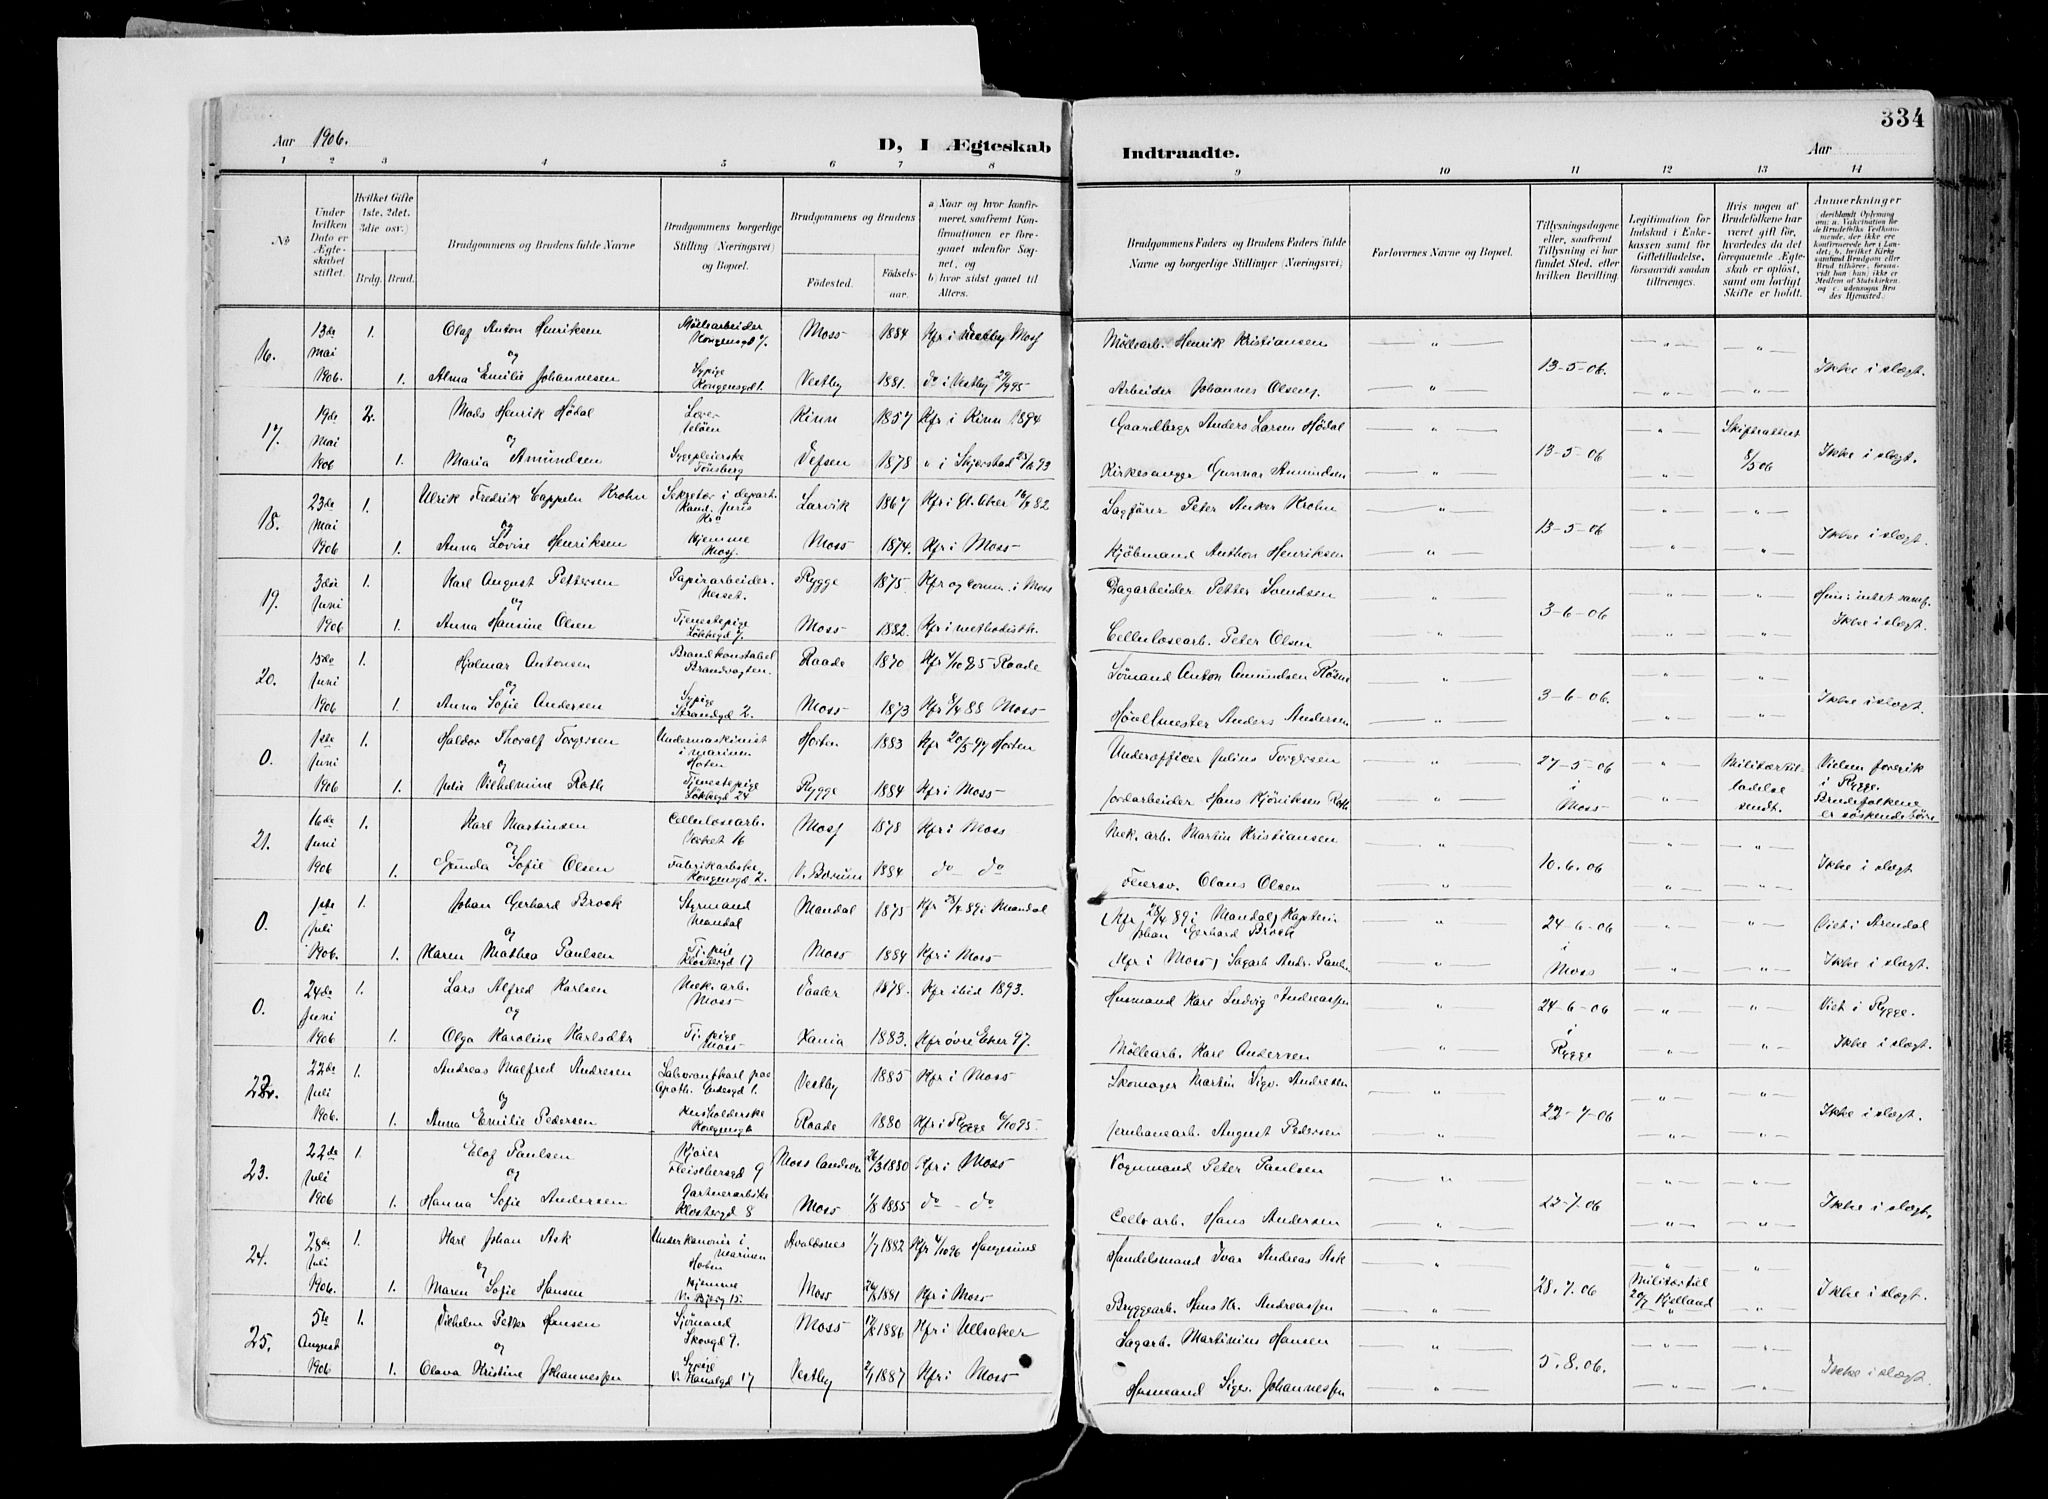 334
Aar 1906.
D, I Ægteskab Indtraadte.
Aar
1 2 3 4 5 6 7 8 9 10 11 12 13 14
No
Under hvilken Dato er Ægteskabet stiftet.
Hvilket Gifte (1ste, 2det, 3die osv.)
Brdg. Brud.
Brudgommens og Brudens fulde Navne
Brudgommens borgerlige Stilling (Næringsvei) og Bopæl.
Brudgommens og Brudens
Födested. Födselsaar.
a) Naar og hvor konfirmeret, saafremt Konfirmationen er foregaaet udenfor Sognet, og
b) hvor sidst gaaet til Alters.
Brudgommens Faders og Brudens Faders fulde Navne og borgerlige Stillinger (Næringsvei)
Forlovernes Navne og Bopæl.
Tillysningsdagene eller, saafremt Tillysning ei har fundet Sted, efter hvilken Bevilling.
Legitimation for Indskud i Enkekassen samt for Giftetilladelse, forsaavidt saadan tiltrænges.
Hvis nogen af Brudefolkene har været gift før, hvorledes da det foregaaende Ægteskab er oplöst, samt om lovligt Skifte er holdt.
Anmerkninger
16. 13de Mai 1906. 1. Olaf Anton Henriksen Möllearbeider Moss 1884 Kfr i Vestby Moss Möllearb. Henrik Kristiansen 13-5-06. Ikke i slægt.
og
1. Alma Emilie Johannesen Sypige Kongensgd 1. Vestby 1881. do i Vestby Arbeider Johannes Olsen
17. 19de Mai 1906 2. Mads Henrik Hödal Kinn 1857 Kfr i Kinn 1874 Gaardbrgr Anders Larsen Hödal 13-5-06 8/5 06 Ikke i slægt.
og
1. Maria Amundsen Sygepleierske Tönsberg Vefsen 1878 " i Skjerstad Kirkesanger Gunnar Amundsen
18. 23de Mai 1906 1. Ulrik Fredrik Cappeln Krohn Sekretær i depart. Kand. juris Kra Larvik 1867 Kfr i Gl. Aker 82 Sagförer Peter Anker Krohn 13-5-06 Ikke i slægt.
og
1. Anna Lovise Henriksen Hjemme Moss Moss 1874. Kfr i Moss Kjöbmand Anthon Henriksen
19. 3die Juni 1906 1. Karl August Pettersen Papirarbeider. Rygge 1875. Kfr og comm. i Moss Dagarbeider Petter Svendsen 3-6-06 Ikke i slægt.
og
1. Anna Hansine Olsen Tjenestepige Moss 1882. Kfr i methodistk. Cellulosearb. Peter Olsen
20. 15de Juni 1906 1. Hjalmar Antonsen Brandkonstabel Brandvagten. Raade 1870 Kfr 4/10 85 Raade Anton Amundsen 3-6-06. Ikke i slægt.
og
1. Anna Sofie Andersen Sypige Strandgd 2. Moss 1873 Kfr 8/4 88 Moss Anders Andersen
0. 1ste Juni 1906 1. Haldor Thoralf Torgersen Undermaskinist i marinen Horten Horten 1883 Kfr 20/5 97 Horten Underofficer Julius Torgersen 27-5-06 i Moss Militærtilladelse sendt. Vielsen foregik i Rygge. Brudefolkene er söskendebörn
og
1. Julie Vilhelmine Roth Tjenestepige Rygge 1884 Kfr i Moss Jordarbeider Hans Roth
21. 16de Juni 1906 1. Karl Martinsen Cellulosearb. Verket 16 Moss 1878 Kfr i Moss Mek. arb. Martin Kristiansen 10.6.06 Ikke i slægt
og
1. Gunda Sofie Olsen Kongensgd 2. V. Bærum 1884 do do Feiersv. Olaus Olsen
0. 1ste Juli 1906. 1. Johan Gerhard Brock Styrmand Mandal Mandal 1875 Kfr 89 i Mandal Kfr 89 i Mandal, Kaptein Johan Gerhard Brock 24-6-06 i Moss Viet i Arendal
og
1. Karen Mathea Paulsen Tj. pige Klostergd 17 Moss 1884 Kfr i Moss Kfr i Moss, Sagarb Andr. Paulsen Ikke i slægt.
0. 24de Juni 1906 1. Lars Alfred Karlsen Mek. arb. Moss Vaaler 1878. Kfr ibid 1893. Husmand Karl Ludvig Andreassen 24-6-06 i Rygge Viet i Rygge.
og
1. Olga Karoline Karlsdtr Tj. pige Moss Xania 1883. Kfr øvre Eker 97. Möllearb. Karl Andersen Ikke i slægt.
22. 22de Juli 1906. 1. Andreas Malfred Andresen Vestby 1885 Kfr i Moss Skomager Martin Sigv. Andresen 22-7-06 Ikke i slægt.
og
1. Anna Emilie Pedersen Husholderske Raade 1880 Kfr i Rygge Jernbanearb. August Pedersen
23. 22de Juli 1906 1. Elof Paulsen Kjører Fleischersgd 9 Moss landsogn 26/3 1880 Kfr i Moss Vognmand Peter Paulsen 22-7-06 Ikke i slægt.
og
1. Hanna Sofie Andersen Klostergd 8 Moss 1/8 1885 do - do Cellarb. Hans Andersen
24. 28de Juli 1906. 1. Karl Johan Ask Underkanoner i marinen Horten Avaldsnes 1/7 1882 Kfr 4/10 96 Haugesund Handelsmand Ivar Andreas Ask 28.7.06 Militærtill 20/7 Kjelland Ikke i slægt.
og
1. Maren Sofie Hansen Hjemme Moss 1881 Kfr i Moss Bryggearb. Hans Kr. Andreassen
25. 5te August 1906 1. Vilhelm Petter Hansen Sjömand Skovgd 9. Moss 1886 Kfr i Ullsaker Sagarb. Martinius Hansen 5.8.06. Ikke i slægt.
og
1. Olava Kristine Johannessen Sypige V. Kanalgd 17 Vestby 2/1 1887 Kfr i Moss Husmand Sigv. Johannessen